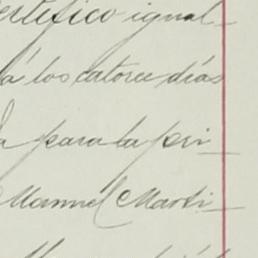 ertifico igual-
á los catorce días
a para la pri-
Manuel Marti-